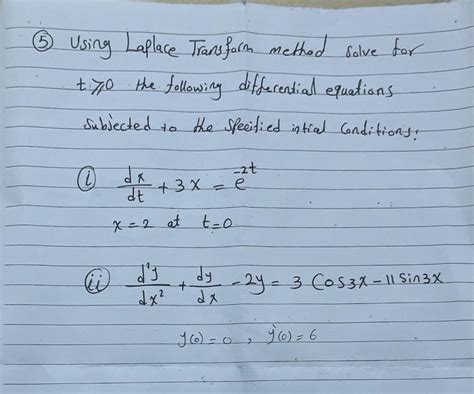 ⑤ Using Laplace Transform method solve for
t ⩾ 0 the following differential equations
subjected to the specified intial conditions:
(i) dx/dt + 3x = e^-2t
x = 2 at t = 0
(ii) d²y/dx² + dy/dx - 2y = 3 Cos3x - 11 Sin3x
y(0) = 0 , y'(0) = 6